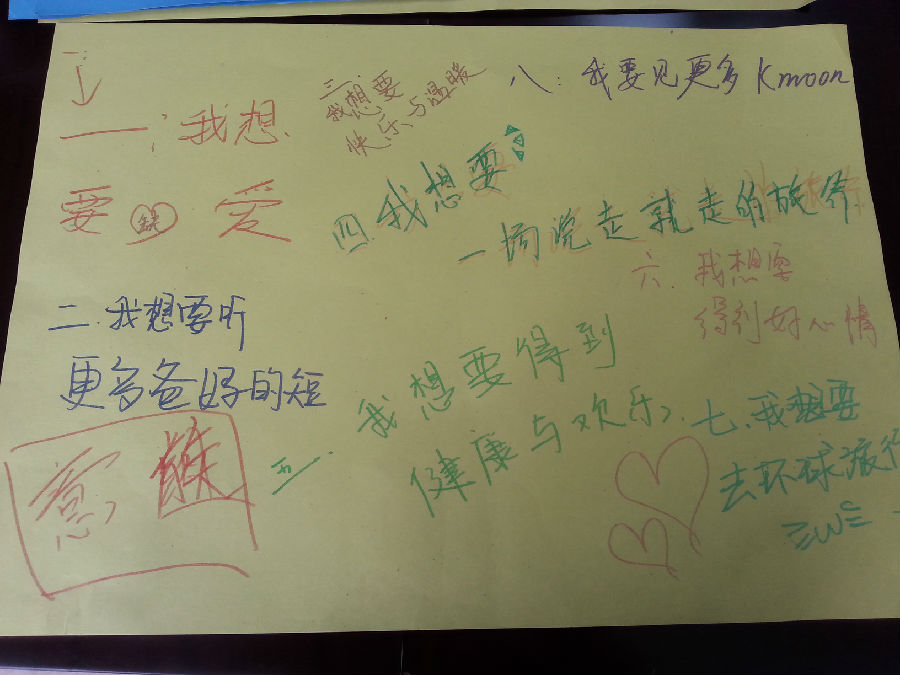 一:我想
要 缺 爱
二.我想要听
更多爸妈的短
三:我想要
快乐与温暖
四.我想要
一场说走就走的旅行
五、我想要得到
健康与欢乐
六、我想要
得到好心情
七、我想要
去环球旅行
八:我要见更多Kmoon